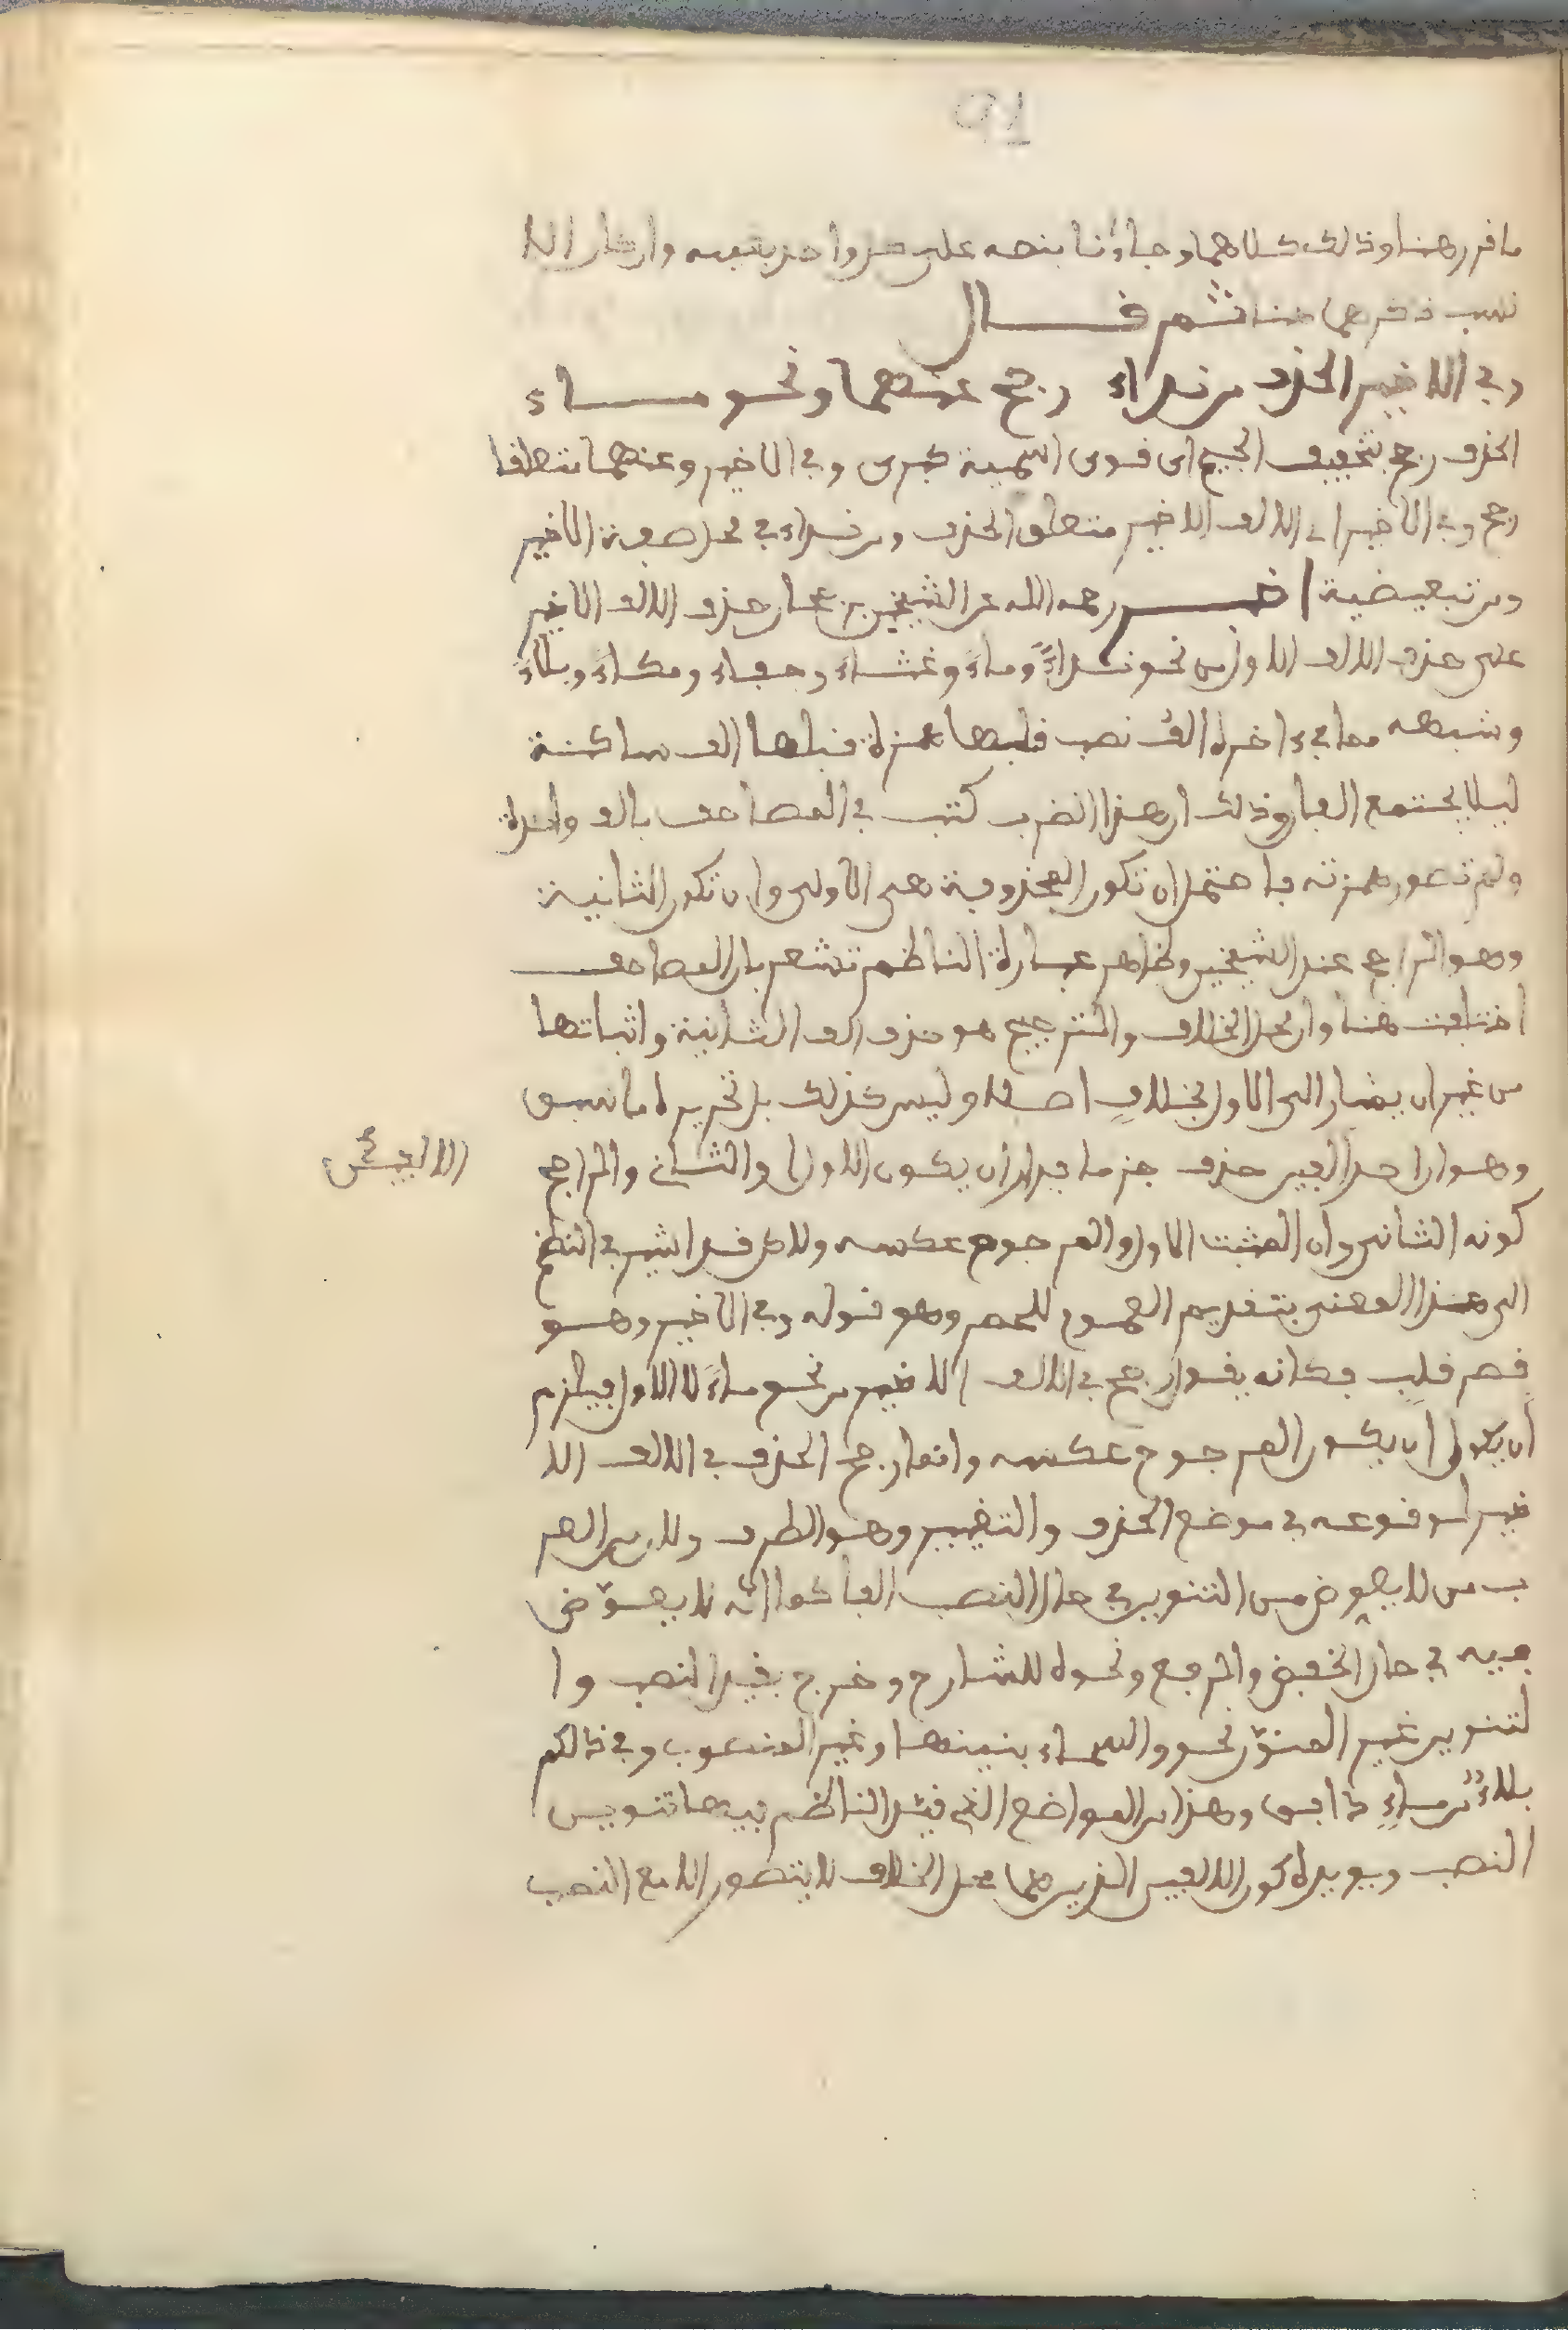 91
ما قررهنا وذلك كلاهما وجاءنا بنصه على حد واحد بعينه وان كان الا
نسب ذكرهما هنا ثم قال
وفي الاخير الحذف من نداء رجح عنهما ونحو ماء
الحذف رجح بتخفيف الجيم اى قوى اسمية كبرى وفي الاخير وعنهما متعلقا
رجح وفي الاخير اى الالف الاخير متعلق الحذف ومن نداء في محل صفة الاخير
ومن تبعيضية اخبر رحمه الله عن الشيخين برجحان حذف الالف الاخير
على حذف الالف الاول من نحو نداءً وماءً وغثاءً وجفاءً ومكاءً وبلاءً
وشبهه مما في ءاخره الف نصب قلبها همزة قبلها الف ساكنة
ليلا يجتمع الفان وذلك ان هذا الضرب كتب في المصاحف بالف واحدة
ولم تصور همزته فاحتمل ان تكون المحذوفة هى الاولى وان تكون الثانية
وهو الراجح عند الشيخين وظاهر عبارة الناظم تشعر بان المصاحف
اختلفت هنا وان محل الخلاف والترجيح هو حذف الف الثانية واثباتها
من غير ان يشار الى الاول بخلافٍ اصلا وليس كذلك بل تحريره ما سبق
وهو ان احد الفين حذف جزما فيدار ان يكون الاول والثانى والراجح
الالفين
كونه الثانى وان المثبت الاول والمرجوح عكسه ولاكن قد اشير في النظم
الى هذا المعنى بتقديم المعمول للحصر وهو قوله وفي الاخير وهو
قصر قلب فكانه يقول رجح في الالف الاخير من نحو ماءً لا الاول فيلزم
ان يكون المرجوح عكسه وانما رجح الحذف في الالف الا
خير لوقوعه في موضع الحذف والتغيير وهو الطرف ولان من العر
ب من لا يعوض من التنوين في حال النصب الفا كما انه لا يعوّض
فيه في حال الخفض والرفع ونحوه للشارح وخرج بقيد النصب وا
لتنوين غير المنوّن نحو والسماء بنينها وغير المنصوب وفي ذالكم
بلاءٌ من ماءٍ دافق وهذا من المواضع التى قيد الناظم فيها تنوين
النصب ويويده كون الالفين الذين هما محل الخلاف لا يتصور الا مع النصب